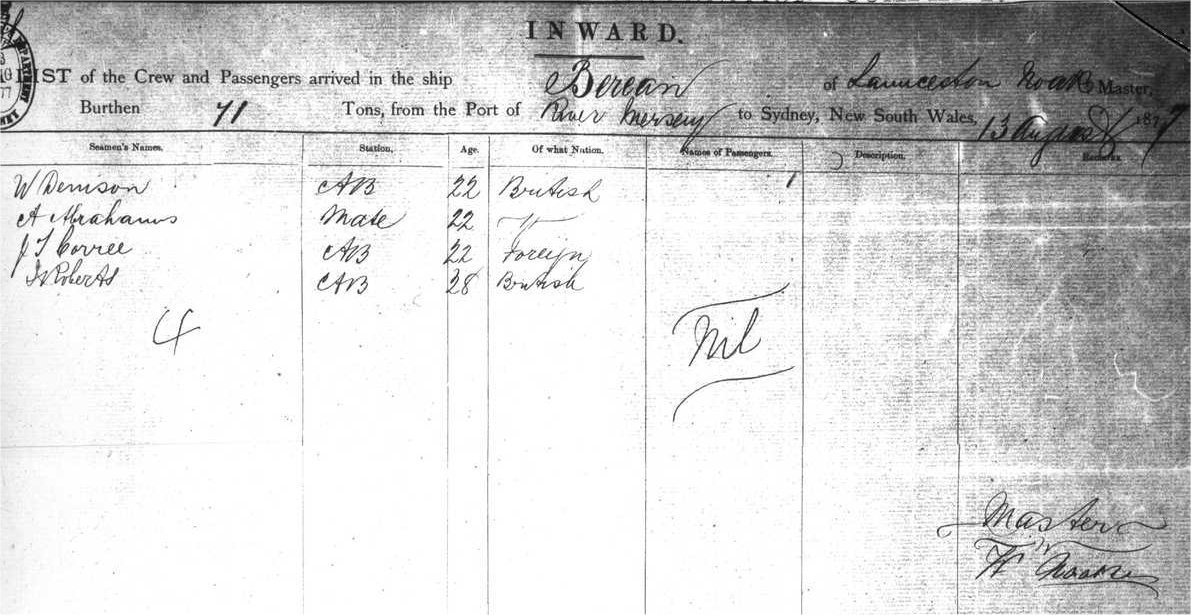 INWARD.
LIST of the Crew and Passengers arrived in the ship Berean of Launceston Noakes Master,
Burthen 71 Tons, from the Port of River Mersey to Sydney, New South Wales, 13 August 1877
Seamen's Names. Station, Age. Of what Nation. Names of Passengers. Description. Remarks
W Denison AB 22 British
A Abrahams Mate 22 "
J T Corree AB 22 Foreign
Roberts AB 28 British
4 Nil
Master